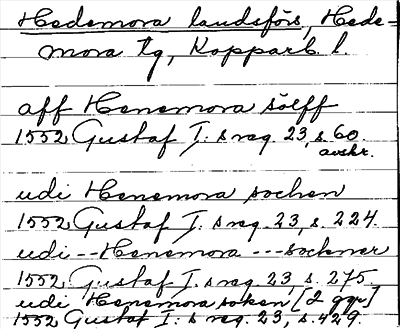 Hedemora landsförs, Hede-
mora tg, Kopparb. l.
aff Henemora sölff
1552 Gustaf I:s reg. 23, s. 60.
avskr.
udi Henemora sochen
1552 Gustaf I:s reg. 23, s. 224.
udi --Henemora ---sockner
1552 Gustaf I:s reg. 23, s. 275.
udi Henemora soken [2 ggr]
1552 Gustaf I:s reg. 23, s. 429.